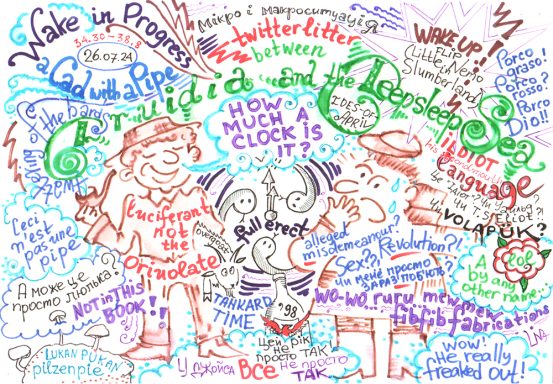 Wake in Progress
34.30-38.8
26.07.24
a Cad with a Pipe
Мікро і макроситуація
twitterlitter
between
Druidia ...and the Deepsleep Sea
IDES OF APRIL
WAKE UP!!
FLIP
(Little Nemo
in
Slumberland)
Porco
graso!
Porco
rosso!
Porco
Dio!!
of the bards
7PMT
HOW
MUCH A
CLOCK IS
IT?
IDIOT
Language?
чи T.S. ELIOT?
VOLAPÜK?
Ceci
n'est
pas une
pipe
Luciferant
not
the
Oriuolate
full erect
alleged
misdemeanour?
Sex??
REvolution?!
Чи мене просто
зараз поб'ють?
lol
A by
any
other name...
А може це
просто люлька?
NOT IN THIS
BOOK!!
TANKARD
TIME
'98
WO-WO.. ruru.. mew mew..
fibfib fabrications
LUKAN PUKAN
pilzenpie
Цей рік
не
просто
ТАК!
У ДЖОЙСА ВСЕ не просто
ТАК
WOW!
He really
freaked out!